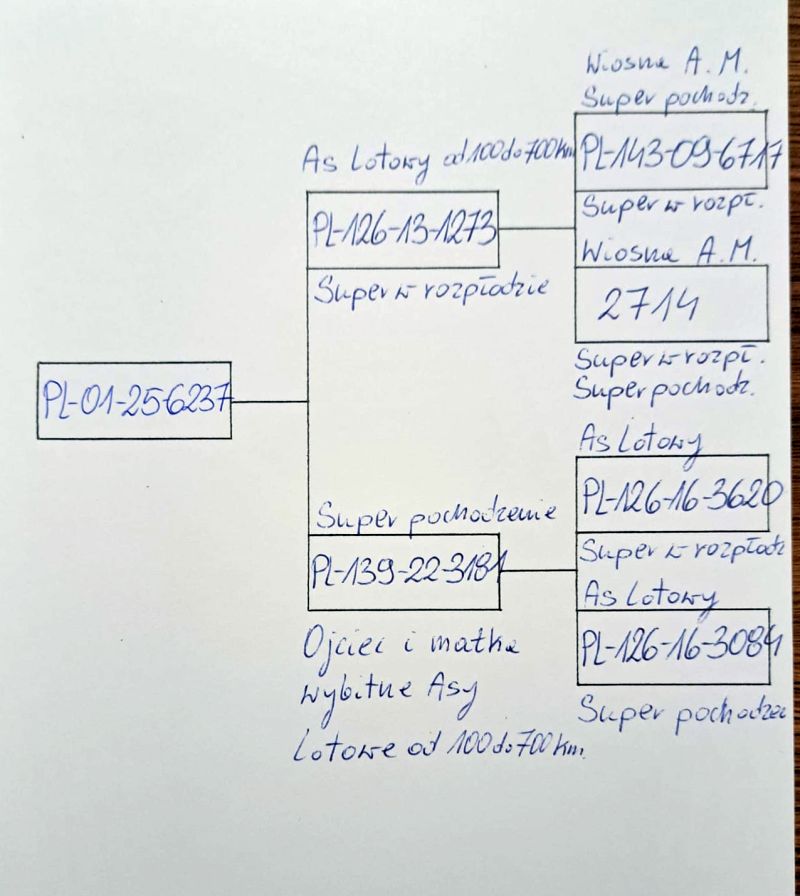 Wiosna A. M.
Super pochodz.
As Lotowy od 100 do 700 km
PL-143-09-6717
PL-126-13-1273
Super w rozpł.
Wiosna A. M.
Super w rozpłodzie
2714
Super w rozpł.
Super pochodz.
PL-01-25-6237
As Lotowy
PL-126-16-3620
Super pochodzenie
Super w rozpłodz
PL-139-22-3181
As Lotowy
PL-126-16-3084
Ojciec i matka
wybitne Asy
Super pochodzen
Lotowe od 100 do 700 km.